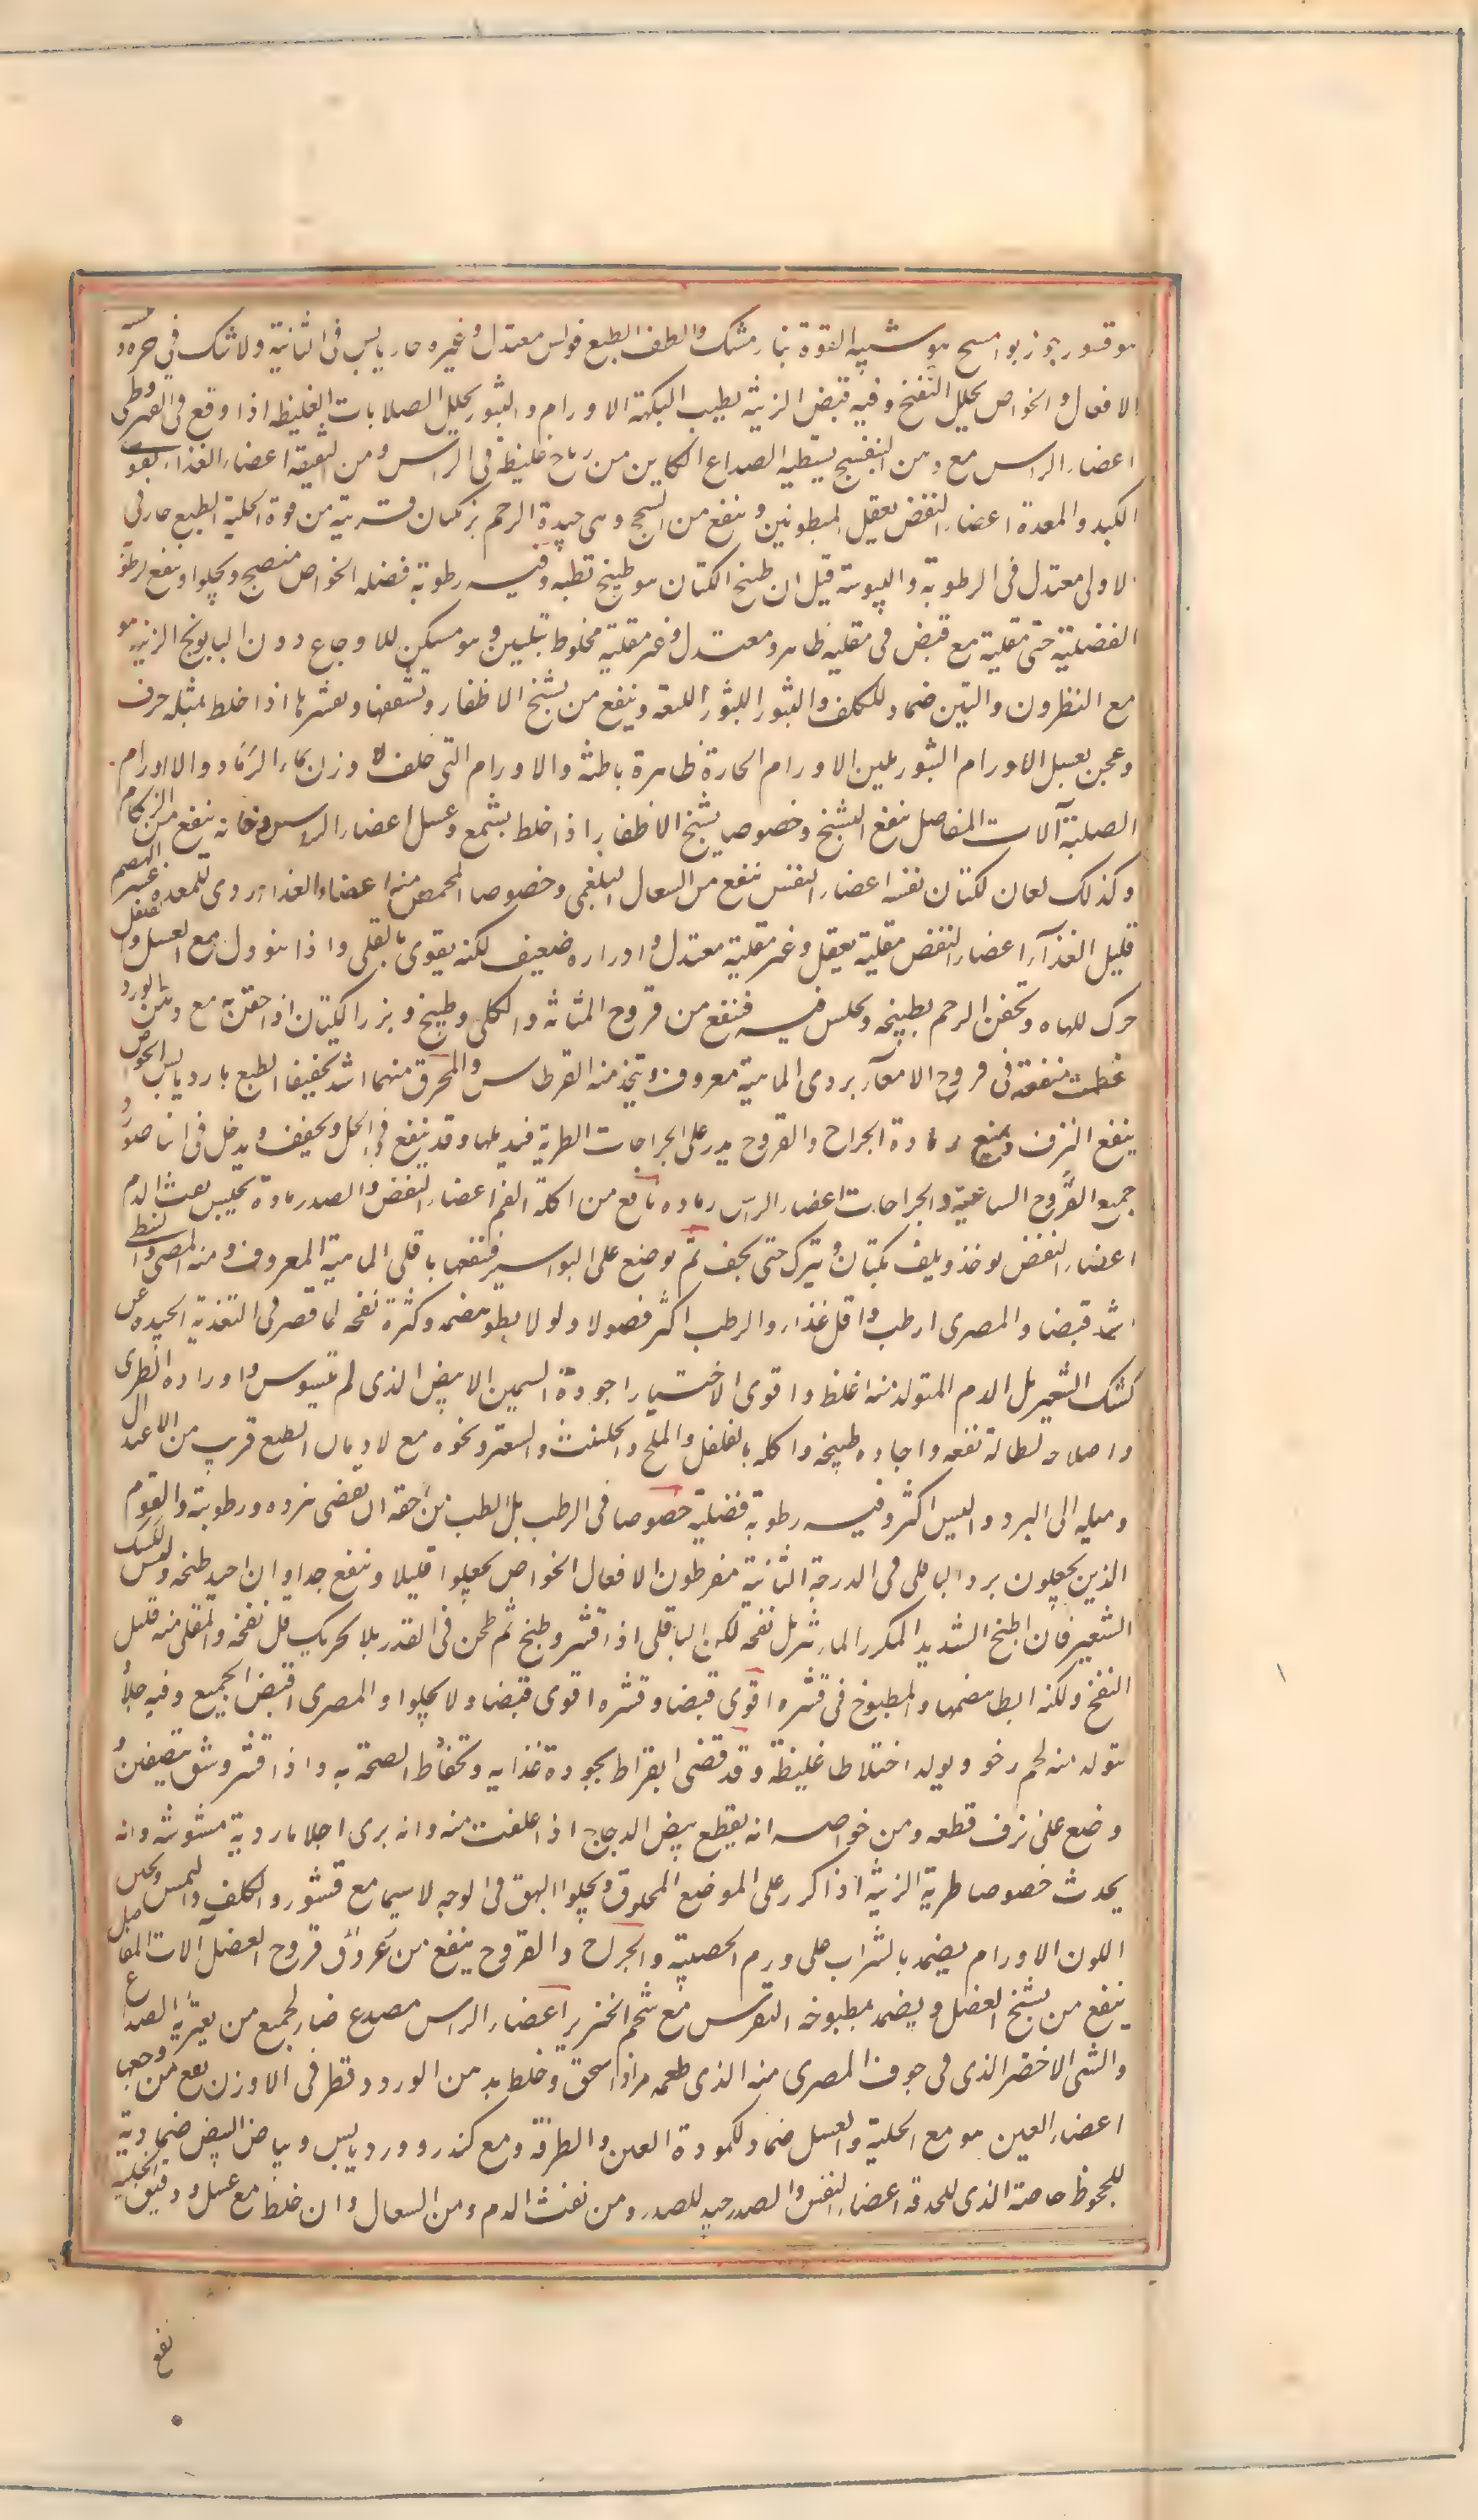 هو قشور جوز بوا مسيح هو شبيه القوة بنار مشك والطف الطبع فولس معتدل وغيره حار يابس فى الثانية ولا شك فى حره و
الافعال والخواص يحلل النفخ وفيه قبض الزينة يطيب النكهة الاورام والبثور يحلل الصلابات الغليظه اذا وقع فى القيروطى
اعضاء الراس مع دهن البنفسج يسقط به الصداع الكاين من رياح غليظة فى الراس ومن الشقيقة اعضاء الغذاء يقوى
الكبد والمعدة اعضاء النفض يعقل المبطونين وينفع من السحج وهى جيدة للرحم بزركتان قريبة من قوة الحلبة الطبع حار فى
الاولى معتدل فى الرطوبة واليبوسة قيل ان طبخ الكتان هو طبيخ رطبه وفيه رطوبة فضلية الخواص منضج ويجلوا وينفع لرطوبته
الفضلية حتى مقلية مع قبض فى مقليه ظاهر ومعتدل وغير مقلية مخلوط بتليين وهو مسكن للاوجاع دون البابونج الزينة هو
مع النطرون والتين ضماد للكلف والبثور اللبثورا اللبنية وينفع من تشنج الاظفار وتشققها وتقشرها اذا خلط بمثله حرف
وعجن بعسل الاورام البثور يلين الاورام الحارة ظاهرة باطنة والاورام التى خلف الاذن بماء الرماد والاورام
الصلبة آلات المفاصل ينفع التشنج وخصوصا تشنج الاظفار اذا خلط بشمع وعسل اعضاء الراس دخانه ينفع من الزكام
وكذلك دخان لكتان نفسه اعضاء النفس ينفع من السعال البلغمى وخصوصا المحمص منه اعضاء الغذاء ردى للمعدة عسر الهضم
قليل الغذآء اعضاء النفض مقلية يعقل وغير مقلية معتدل وادراره ضعيف لكنه يقوى بالقلى واذا تنوول مع العسل والفلفل
حرك للباه وتحقن الرحم بطبيخه ويجلس فيه فينفع من قروح المثانه والكلى وطبيخ وبزر الكتان اذا حقن به مع دهن الورد
عظمت منفعته فى قروح الامعآء بردى الماهية معروف ويتخذ منه القرطاس والمحرق منهما اشد تجفيفا الطبع بارد يابس الخواص
ينفع النزف ويمنع رماده الجراح والقروح يذر على الجراحات الطرية فيدملها وقد ينقع فى الخل ويجفف ويدخل فى الناصور و
جميع القروح الساعية والجراحات اعضاء الراس رماده نافع من اكلة الفم اعضاء النفض والصدر مادة يحبس نفث الدم
اعضاء النفض يوخذ ويلف بكتان ويترك حتى يجف ثم يوضع على البواسير فينفعها باقلى الماهية المعروف ومنه المصرى والنبطى
اشد قبضا والمصرى ارطب واقل غذاء والرطب اكثر فضولا ولولا بطو هضمه وكثرة نفخه لما قصر فى التغذية الجيدة عن
كشك الشعير بل الدم المتولد منه اغلظ واقوى الاختيار اجوده السمين الابيض الذى لم يتسوس واورده الطرى
واصلاحه لطالة نقعه واجاده طبيخه واكله بالفلفل والملح والحلتيث والسعتر ونحوه مع الادهان الطبع قريب من الاعتدال
وميله الى البرد واليبس اكثر وفيه رطوبة فضلية خصوصا فى الرطب بل الرطب من حقه ان يقضى ببرده ورطوبته والقوم
الذين يجعلون برد الباقلى فى الدرجة الثانية مفرطون الافعال الخواص يجلوا قليلا وينفخ جدا وان اجيد طبخه وليس ككشك
الشعير فان الطبخ الشديد المكرر الماء يزيل نفخه لكن الباقلى اذا قشر وطبخ ثم طحن فى القدر بلا تحريك قل نفخه والمقلى منه قليل
النفخ ولكنه ابطا هضمها والمطبوخ فى قشره اقوى قبضا وقشره اقوى قبضا ولا يجلوا والمصرى اقبض الجميع وفيه جلاء
يتولد منه لحم رخو ويولد اختلاطا غليظة وقد قضى ابقراط بجودة غذايه وتحفاظ الصحة به واذا قشر وشق بنصفين
وضع على نزف قطعه ومن خواصه انه يقطع بيض الدجاج اذا علفت منه وانه يرى احلاما ردية مشوشه وانه
يحدث خصوصا طرية الزينة اذا كرر على الموضع المحلوق ويجلوا البهق فى الوجه لاسيما مع قشوره والكلف والنمش ويحسن
اللون الاورام يضمد بالشراب على ورم الخصية والجراح والقروح ينفع من عروق قروح العضل آلات المفاصل
ينفع من تشنج العضل ويضمد بمطبوخه النقرس مع شحم الخنزير اعضاء الراس مصدع ضار لجميع من يعتريه الصداع
والشى الاخضر الذى فى جوف المصرى منه الذى طعمه مر اذا سحق وخلط بدهن الورد وقطر فى الاذن نفع من وجعها
اعضاء العين هو مع الحلبة والعسل ضماد لكمودة العين والطرفة ومع كندر وورد يابس وبياض البيض ضماد بة
للجحوظ خاصة الذى للحدقة اعضاء النفس والصدر جيد للصدر ومن نفث الدم ومن السعال وان خلط مع عسل ودقيق الحلبة
نفع